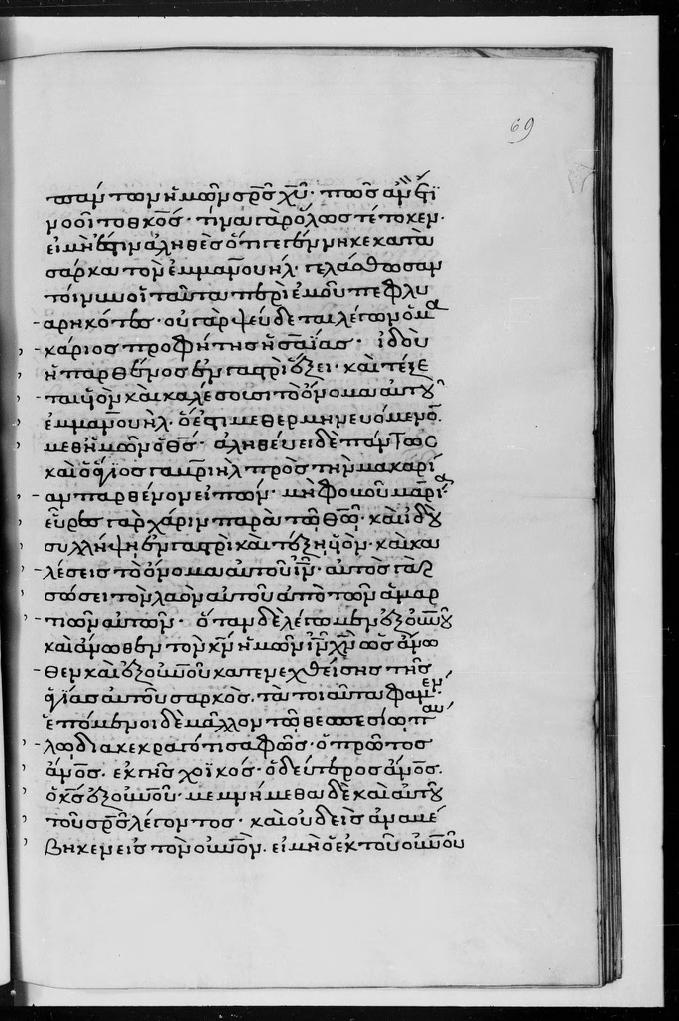 69
πσαν των ἡμῶν σρς χῦ· πῶς ἂν ἔτι
νοοῖτο θκὸς· τίνα γὰρ ὅλως τέτοκεν·
εἰ μή ἐστιν ἀληθὲς ὅτι γεγέννηκε κατὰ
σάρκα τὸν ἐμμανουήλ· γελάσθωσαν
τοίνυν οἳ ταῦτα περὶ ἐμοῦ πεφλυ
αρηκότες· οὐ γὰρ ψεύδεται λέγων ὁ μα
κάριος προφήτης ἡσαΐας· ἰδοὺ
ἡ παρθένος ἐν γαστρὶ ἕξει· καὶ τέξε
ται υἱὸν καὶ καλέσουσι τὸ ὄνομα αὐτοῦ
ἐμμανουήλ· ὅ ἐστι μεθερμηνευόμενον
μεθ ἡμῶν ὁ θς· ἀληθεύει δὲ πάντως
καὶ ὁ ἅγιος γαβριὴλ πρὸς τὴν μακαρί
αν παρθένον εἰπών· μὴ φοβοῦ μαρι
εὗρες γὰρ χάριν παρὰ τῷ θῷ· καὶ ἰδοὺ
συλλήψῃ ἐν γαστρὶ καὶ τέξῃ υἱὸν· καὶ κα
λέσεις τὸ ὄνομα αὐτοῦ ιν· αὐτὸς γὰρ
σώσει τὸν λαὸν αὐτοῦ ἀπὸ τῶν ἁμαρ
τιῶν αὐτῶν· ὅταν δὲ λέγωμεν ἐξ οὐνοῦ
καὶ ἄνωθεν τὸν κν ἡμῶν ιν χν ὡς ἄνω
θεν καὶ ἐξ οὐνοῦ κατενεχθείσης τῆς
ἁγίας αὐτοῦ σαρκὸς, τὰ τοιαῦτα φαμεν
ἑπόμενοι δὲ μᾶλλον τῷ θεσπεσίῳ παύ
λῳ διακεκραγότι σαφῶς· ὁ πρῶτος
ἄνος, ἐκ γῆς χοϊκός· ὁ δεύτερος ἄνος,
ὁ κς ἐξ οὐνοῦ· μεμνήμεθα δὲ καὶ αὐτοῦ
τοῦ σρς λέγοντος· καὶ οὐδεὶς ἀναβέ
βηκεν εἰς τὸν οὐνὸν, εἰ μὴ ὁ ἐκ τοῦ οὐνοῦ